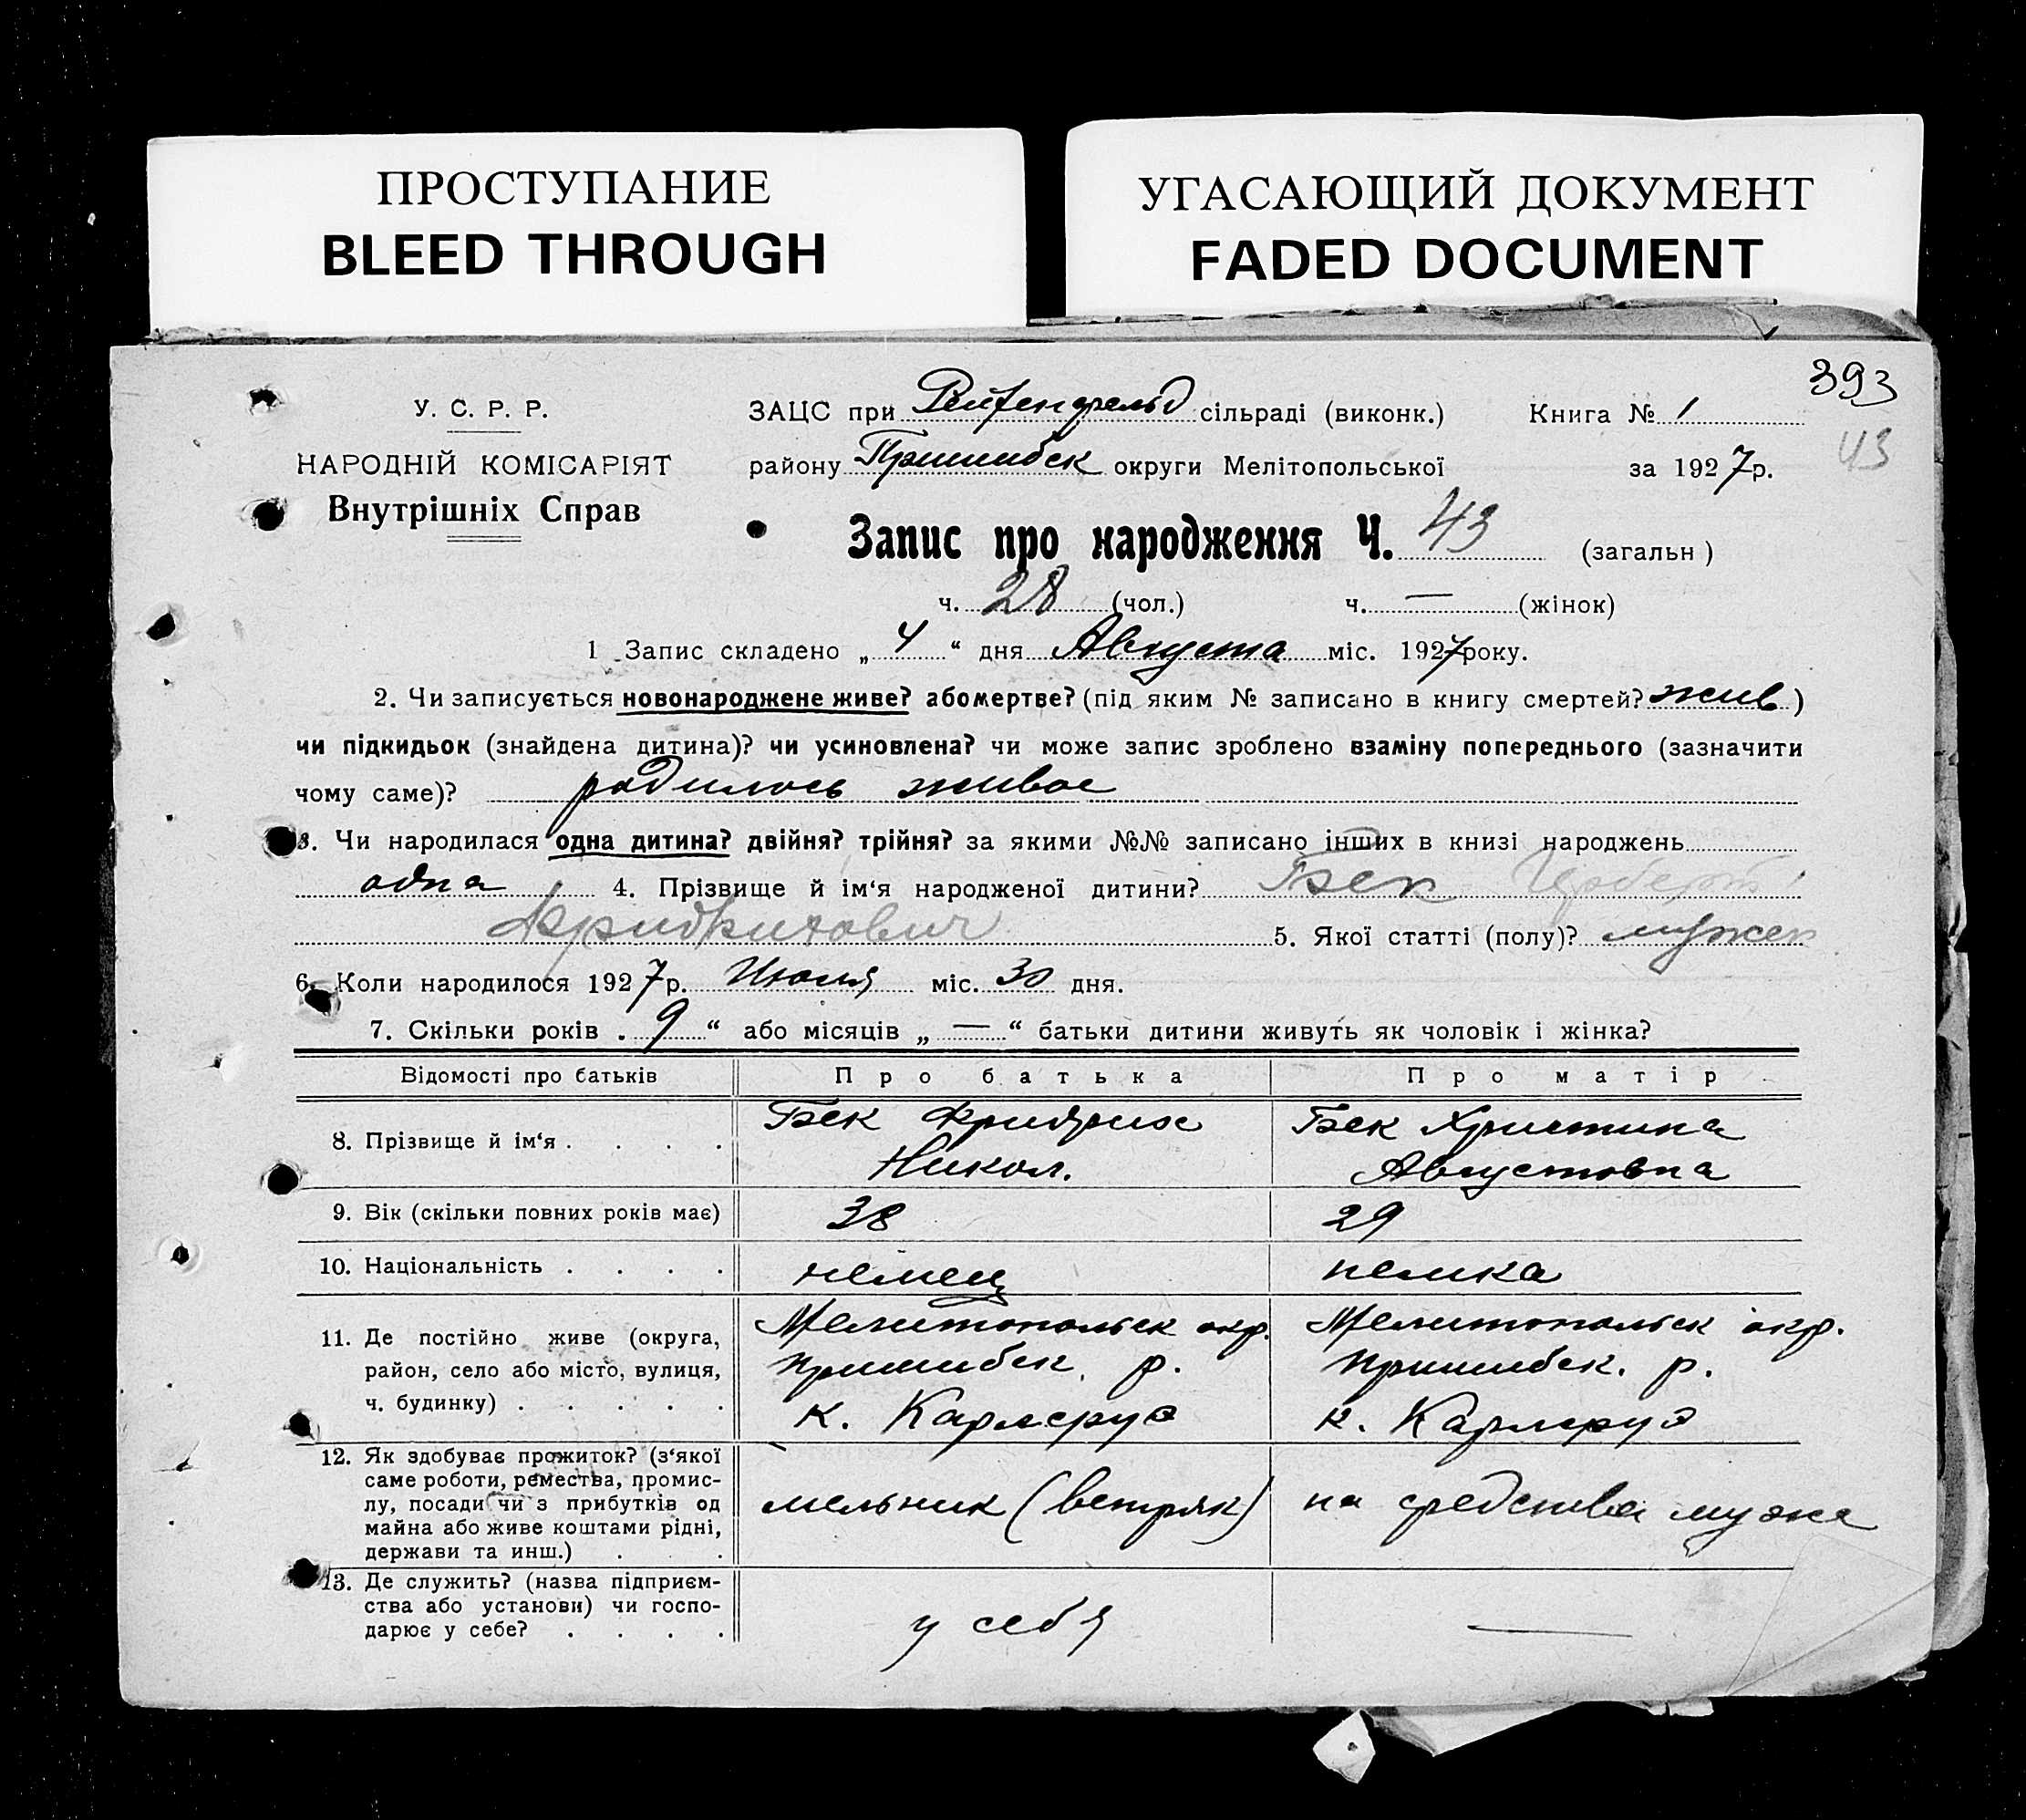 ПРОСТУПАНИЕ
BLEED THROUGH
УГАСАЮЩИЙ ДОКУМЕНТ
FADED DOCUMENT
393
У. С. Р. Р.
НАРОДНІЙ КОМІСАРІЯТ
Внутрішніх Справ
ЗАЦС при Рейхенфельд сільраді (виконк.) Книга № 1
району Пришибск округи Мелітопольської за 1927 р. 43
Запис про народження Ч. 43 (загальн)
ч. 28 (чол.) ч. — (жінок)
1 Запис складено „ 4 “ дня Августа міс. 1927 року.
2. Чи записується новонароджене живе? або мертве? (під яким № записано в книгу смертей? жив )
чи підкидьок (знайдена дитина)? чи усиновлена? чи може запис зроблено взаміну попереднього (зазначити
чому саме)? родилось живое
3. Чи народилася одна дитина? двійня? трійня? за якими №№ записано інших в книзі народжень
одна 4. Прізвище й ім‘я народженої дитини? Бек
Фридрихович 5. Якої статті (полу)? мужск
6. Коли народилося 1927 р. Июля міс. 30 дня.
7. Скільки років „ 9 “ або місяців „ — “ батьки дитини живуть як чоловік і жінка?
Відомості про батьків Про батька Про матір
8. Прізвище й ім‘я . . . . Бек Фридрих Никол. Бек Христина Августовна
9. Вік (скільки повних років має) 38 29
10. Національність . . . . немец немка
11. Де постійно живе (округа, Мелитопольск окр. Мелитопольск окр.
район, село або місто, вулиця, Пришибск. р. Пришибск. р.
ч. будинку) . . . . . к. Карлсруэ к. Карлсруэ
12. Як здобуває прожиток? (з‘якої
саме роботи, ремества, промис-
лу, посади чи з прибутків од мельник (ветряк) на средства мужа
майна або живе коштами рідні,
держави та инш.) . . .
13. Де служить? (назва підприєм-
ства або установи) чи госпо- у себя —
дарює у себе? . . . .